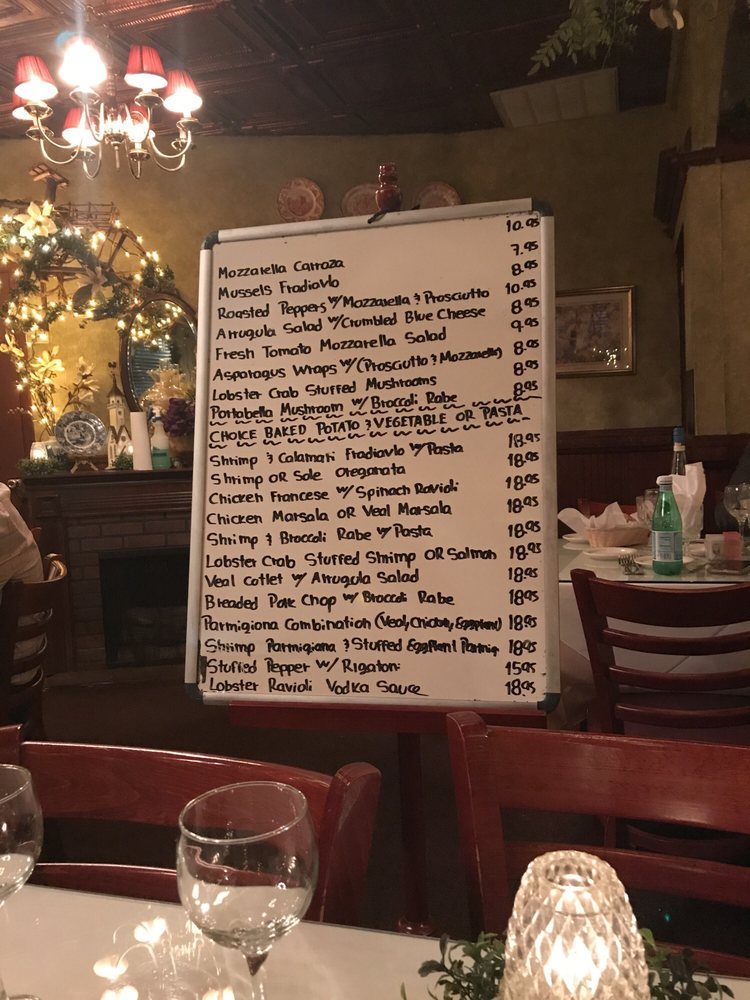 10.95
Mozzarella Carroza 7.95
Mussels Fradiavlo 8.95
Roasted Peppers w/Mozzarella & Prosciutto 10.95
Arrugula Salad w/Crumbled Blue Cheese 8.95
Fresh Tomato Mozzarella Salad 9.95
Asparagus Wraps w/(Prosciutto & Mozzarella) 8.95
Lobster Crab Stuffed Mushrooms 8.95
Portabella Mushroom w/ Broccoli Rabe 8.95
CHOICE BAKED POTATO & VEGETABLE OR PASTA
Shrimp & Calamari Fradiavlo w/Pasta 18.95
Shrimp OR Sole Oreganata 18.95
Chicken Francese w/Spinach Ravioli 18.95
Chicken Marsala OR Veal Marsala 18.95
Shrimp & Broccoli Rabe w/Pasta 18.95
Lobster Crab Stuffed Shrimp OR Salmon 18.95
Veal Cutlet w/ Arrugula Salad 18.95
Breaded Pork Chop w/ Broccoli Rabe 18.95
Parmigiona Combination (Veal, Chicken, Eggplant) 18.95
Shrimp Parmigiana & Stuffed Eggplant Parmig 18.95
Stuffed Pepper w/ Rigatoni 15.95
Lobster Ravioli Vodka Sauce 18.95